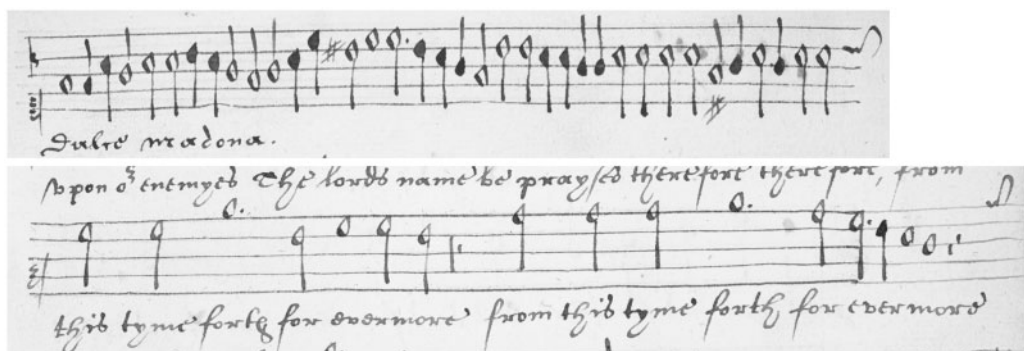 Dulce madona.
vpon oʳ enemyes The lords name be praysed therefore therefore, from
this tyme forth for evermore from this tyme forth for evermore